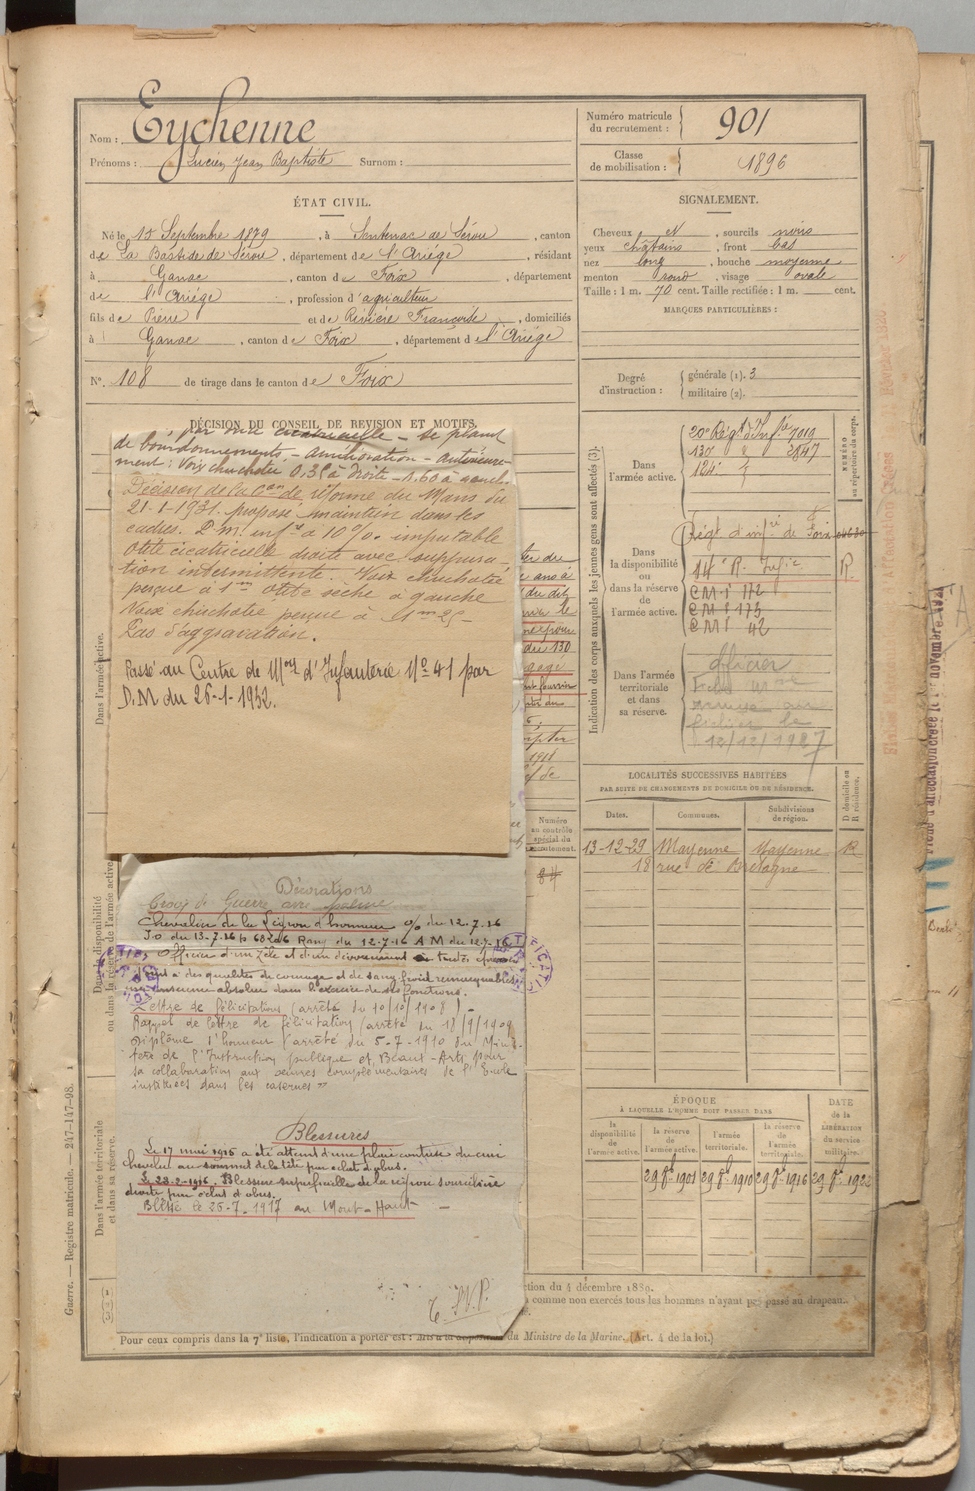 Nom : Eychenne
Prénoms : Lucien Jean Baptiste Surnom :
Numéro matricule du recrutement : 901
Classe de mobilisation : 1896
ÉTAT CIVIL.
Né le 15 Septembre 1879, à Sentenac de Sérou, canton
de La Bastide de Sérou, département de l'Ariége, résidant
à Ganac, canton de Foix, département
de l'Ariége, profession d'agriculteur
fils de Pierre et de Rivière Françoise, domiciliés
à Ganac, canton de Foix, département de l'Ariége
N° 108 de tirage dans le canton de Foix
SIGNALEMENT.
Cheveux N, sourcils noirs
yeux châtains, front bas
nez long, bouche moyenne
menton rond, visage ovale
Taille : 1 m. 70 cent. Taille rectifiée : 1 m. cent.
MARQUES PARTICULIÈRES :
Degré d'instruction :
générale (1). 3
militaire (2).
DÉCISION DU CONSEIL DE RÉVISION ET MOTIFS.
cicatricielle - Se plaint
de bourdonnements - Amélioration - Antérieure-
ment : Voix chuchotée 0,35 à droite - 1.60 à
Décision de la Con de réforme du Mans du
21-1-1931. proposé maintien dans les
cadres. P.M. infre à 10%. imputable
Otite cicatricielle droite avec suppura-
tion intermittente. Voix chuchotée
perçue à 1m Otite sèche à gauche
Voix chuchotée perçue à 1m25-
Pas d'aggravation.
Passé au Centre de Mon d'Infanterie N° 41 par
D.M du 26-1-1932.
Décorations
Croix de Guerre avec palme
Chevalier de la Légion d'honneur % du 12.7.16
JO du 13.7.16 p 6226 Rang du 12-7-16 AM du 12-7-16
Officier d'un zèle et d'un dévouement à toutes épreuves
des qualités de courage et de sang froid remarquables
absolue dans l'exercice de ses fonctions.
Lettre de félicitations (arrêté du 10/10/1908)
Rappel de lettre de félicitation (arrêté du 18/9/1909
Diplôme d'honneur (arrêté du 5-7-1910 du Minis-
tère de l'Instruction publique et Beaux-Arts pour
sa collaboration aux oeuvres complémentaires de l'Ecole
instituées dans les casernes"
Blessures
Le 17 mai 1915 a été atteint d'une plaie contuse du cuir
chevelu au sommet de la tête par éclat d'obus.
Le 23-2-1916. Blessure superficielle de la région sourcilière
droite par éclat d'obus.
Blessé le 25-7-1917 au Mont-Haut -
T.S.V.P.
Indication des corps auxquels les jeunes gens sont affectés (3).
Dans l'armée active.
20e Régt d'Infie 7010
130 " 3847
124 "
NUMÉRO au répertoire du corps.
Dans la disponibilité ou dans la réserve de l'armée active.
Régt d'infie de Foix
14e R. Infie R.
C M I 172
C M I 175
C M I 42
Dans l'armée territoriale et dans sa réserve.
Officier
fichier le
12/12/1927
LOCALITÉS SUCCESSIVES HABITÉES
PAR SUITE DE CHANGEMENTS DE DOMICILE OU DE RÉSIDENCE.
Dates. Communes. Subdivisions de région. D domicile ou R résidence.
13-12-29 Mayenne Mayenne R
18 rue de Bretagne
Numéro au contrôle spécial du recrutement.
ÉPOQUE
À LAQUELLE L'HOMME DOIT PASSER DANS
la disponibilité de l'armée active.
la réserve de l'armée active.
l'armée territoriale.
la réserve de l'armée territoriale.
DATE de la LIBÉRATION du service militaire.
29 8bre 1901 29 8bre 1910 29 8bre 1916 29 8bre 1922
Dans l'armée active.
Dans la disponibilité
ou dans la réserve de l'armée active.
Dans l'armée territoriale
et dans sa réserve.
Guerre. — Registre matricule. — 247-147-98. 1
ction du 4 décembre 1889.
comme non exercés tous les hommes n'ayant pas passé au drapeau.
Pour ceux compris dans la 7e liste, l'indication à porter est : Mis à la disposition du Ministre de la Marine. (Art. 4 de la loi.)